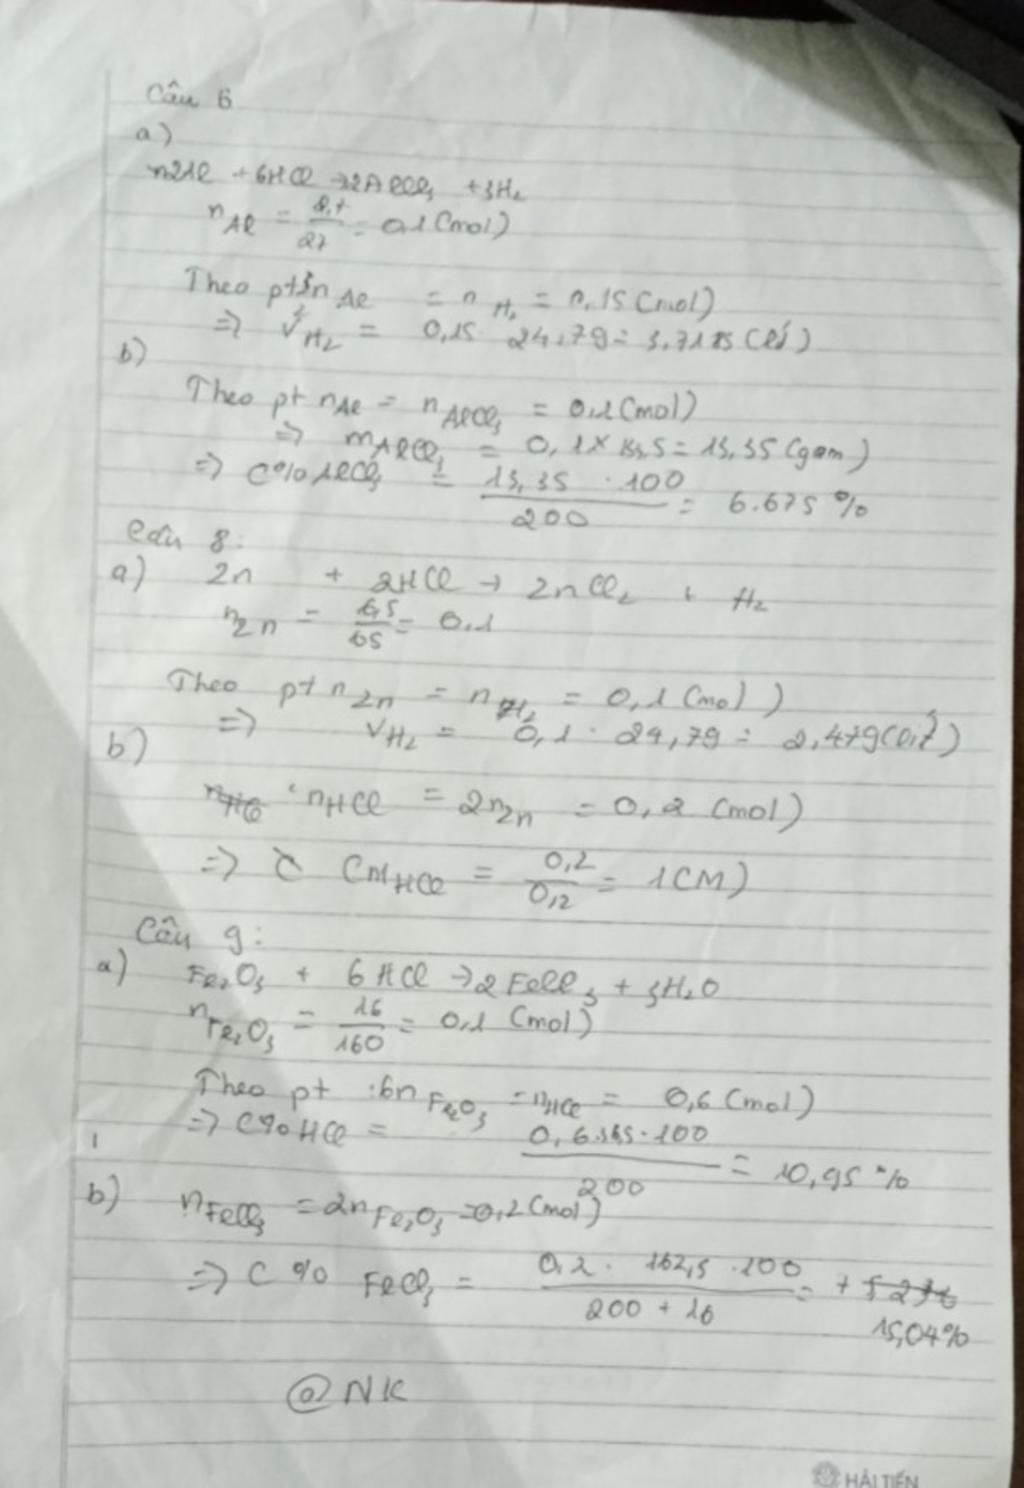 Câu 6
a)
2Al + 6HCl → 2AlCl₃ + 3H₂
n Al = 2,7/27 = 0,1 (mol)
Theo pt n Al = n H₂ = 0,15 (mol)
=> V H₂ = 0,15 . 24,79 = 3,7185 (lít)
b)
Theo pt n Al = n AlCl₃ = 0,1 (mol)
=> m AlCl₃ = 0,1 × 133,5 = 13,35 (gam)
=> C% AlCl₃ = 13,35 . 100 / 200 = 6.675 %
Câu 8:
a) Zn + 2HCl → ZnCl₂ + H₂
n Zn = 6,5/65 = 0,1
Theo pt n Zn = n H₂ = 0,1 (mol)
=> V H₂ = 0,1 . 24,79 = 2,479 (lít)
b)
n HCl = 2n Zn = 0,2 (mol)
=> CM HCl = 0,2/0,2 = 1 (M)
Câu 9:
a) Fe₂O₃ + 6HCl → 2FeCl₃ + 3H₂O
n Fe₂O₃ = 16/160 = 0,1 (mol)
Theo pt : 6n Fe₂O₃ = n HCl = 0,6 (mol)
=> C% HCl = 0,6.36,5.100 / 200 = 10,95 %
b) n FeCl₃ = 2n Fe₂O₃ = 0,2 (mol)
=> C% FeCl₃ = 0,2 . 162,5 . 100 / 200 + 16 =
15,04%
@NK
HẢI TIẾN